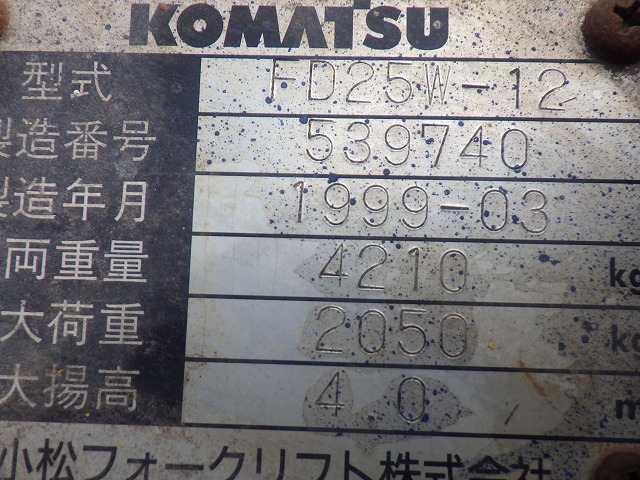 KOMATSU
型式 FD25W-12
製造番号 539740
製造年月 1999-03
両重量 4210 kg
大荷重 2050 kg
大揚高 4 0 m
小松フォークリフト株式会社